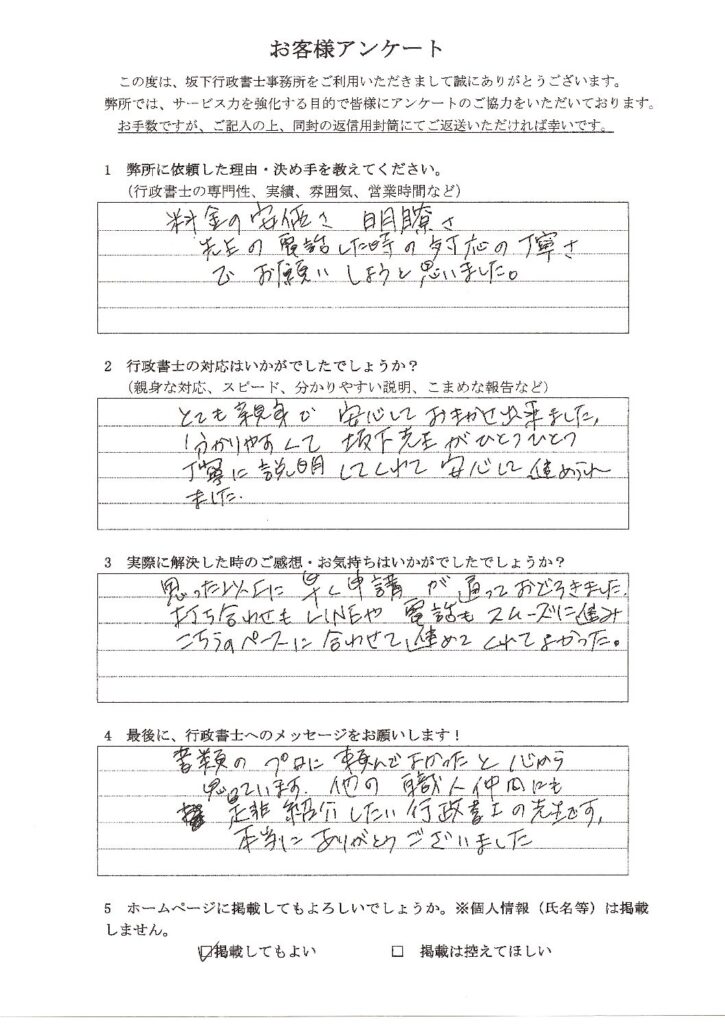 お客様アンケート
この度は、坂下行政書士事務所をご利用いただきまして誠にありがとうございます。
弊所では、サービス力を強化する目的で皆様にアンケートのご協力をいただいております。
お手数ですが、ご記入の上、同封の返信用封筒にてご返送いただければ幸いです。
1 弊所に依頼した理由・決め手を教えてください。
(行政書士の専門性、実績、雰囲気、営業時間など)
料金の安価さ 明瞭さ
先生の電話した時の対応の丁寧さ
で お願いしようと思いました。
2 行政書士の対応はいかがでしたでしょうか?
(親身な対応、スピード、分かりやすい説明、こまめな報告など)
とても親身で 安心して おまかせ出来ました。
分かりやすくて 坂下先生がひとつひとつ
丁寧に説明してくれて 安心して進められ
ました。
3 実際に解決した時のご感想・お気持ちはいかがでしたでしょうか?
思った以上に早く申請が通っておどろきました。
打ち合わせもLINEや電話もスムーズに進み
こちらのペースに合わせて進めてくれてよかった。
4 最後に、行政書士へのメッセージをお願いします!
書類のプロに頼んでよかったと心から
思っています。他の職人仲間にも
是非紹介したい行政書士の先生です。
本当にありがとうございました
5 ホームページに掲載してもよろしいでしょうか。※個人情報(氏名等)は掲載
しません。
☑掲載してもよい □ 掲載は控えてほしい